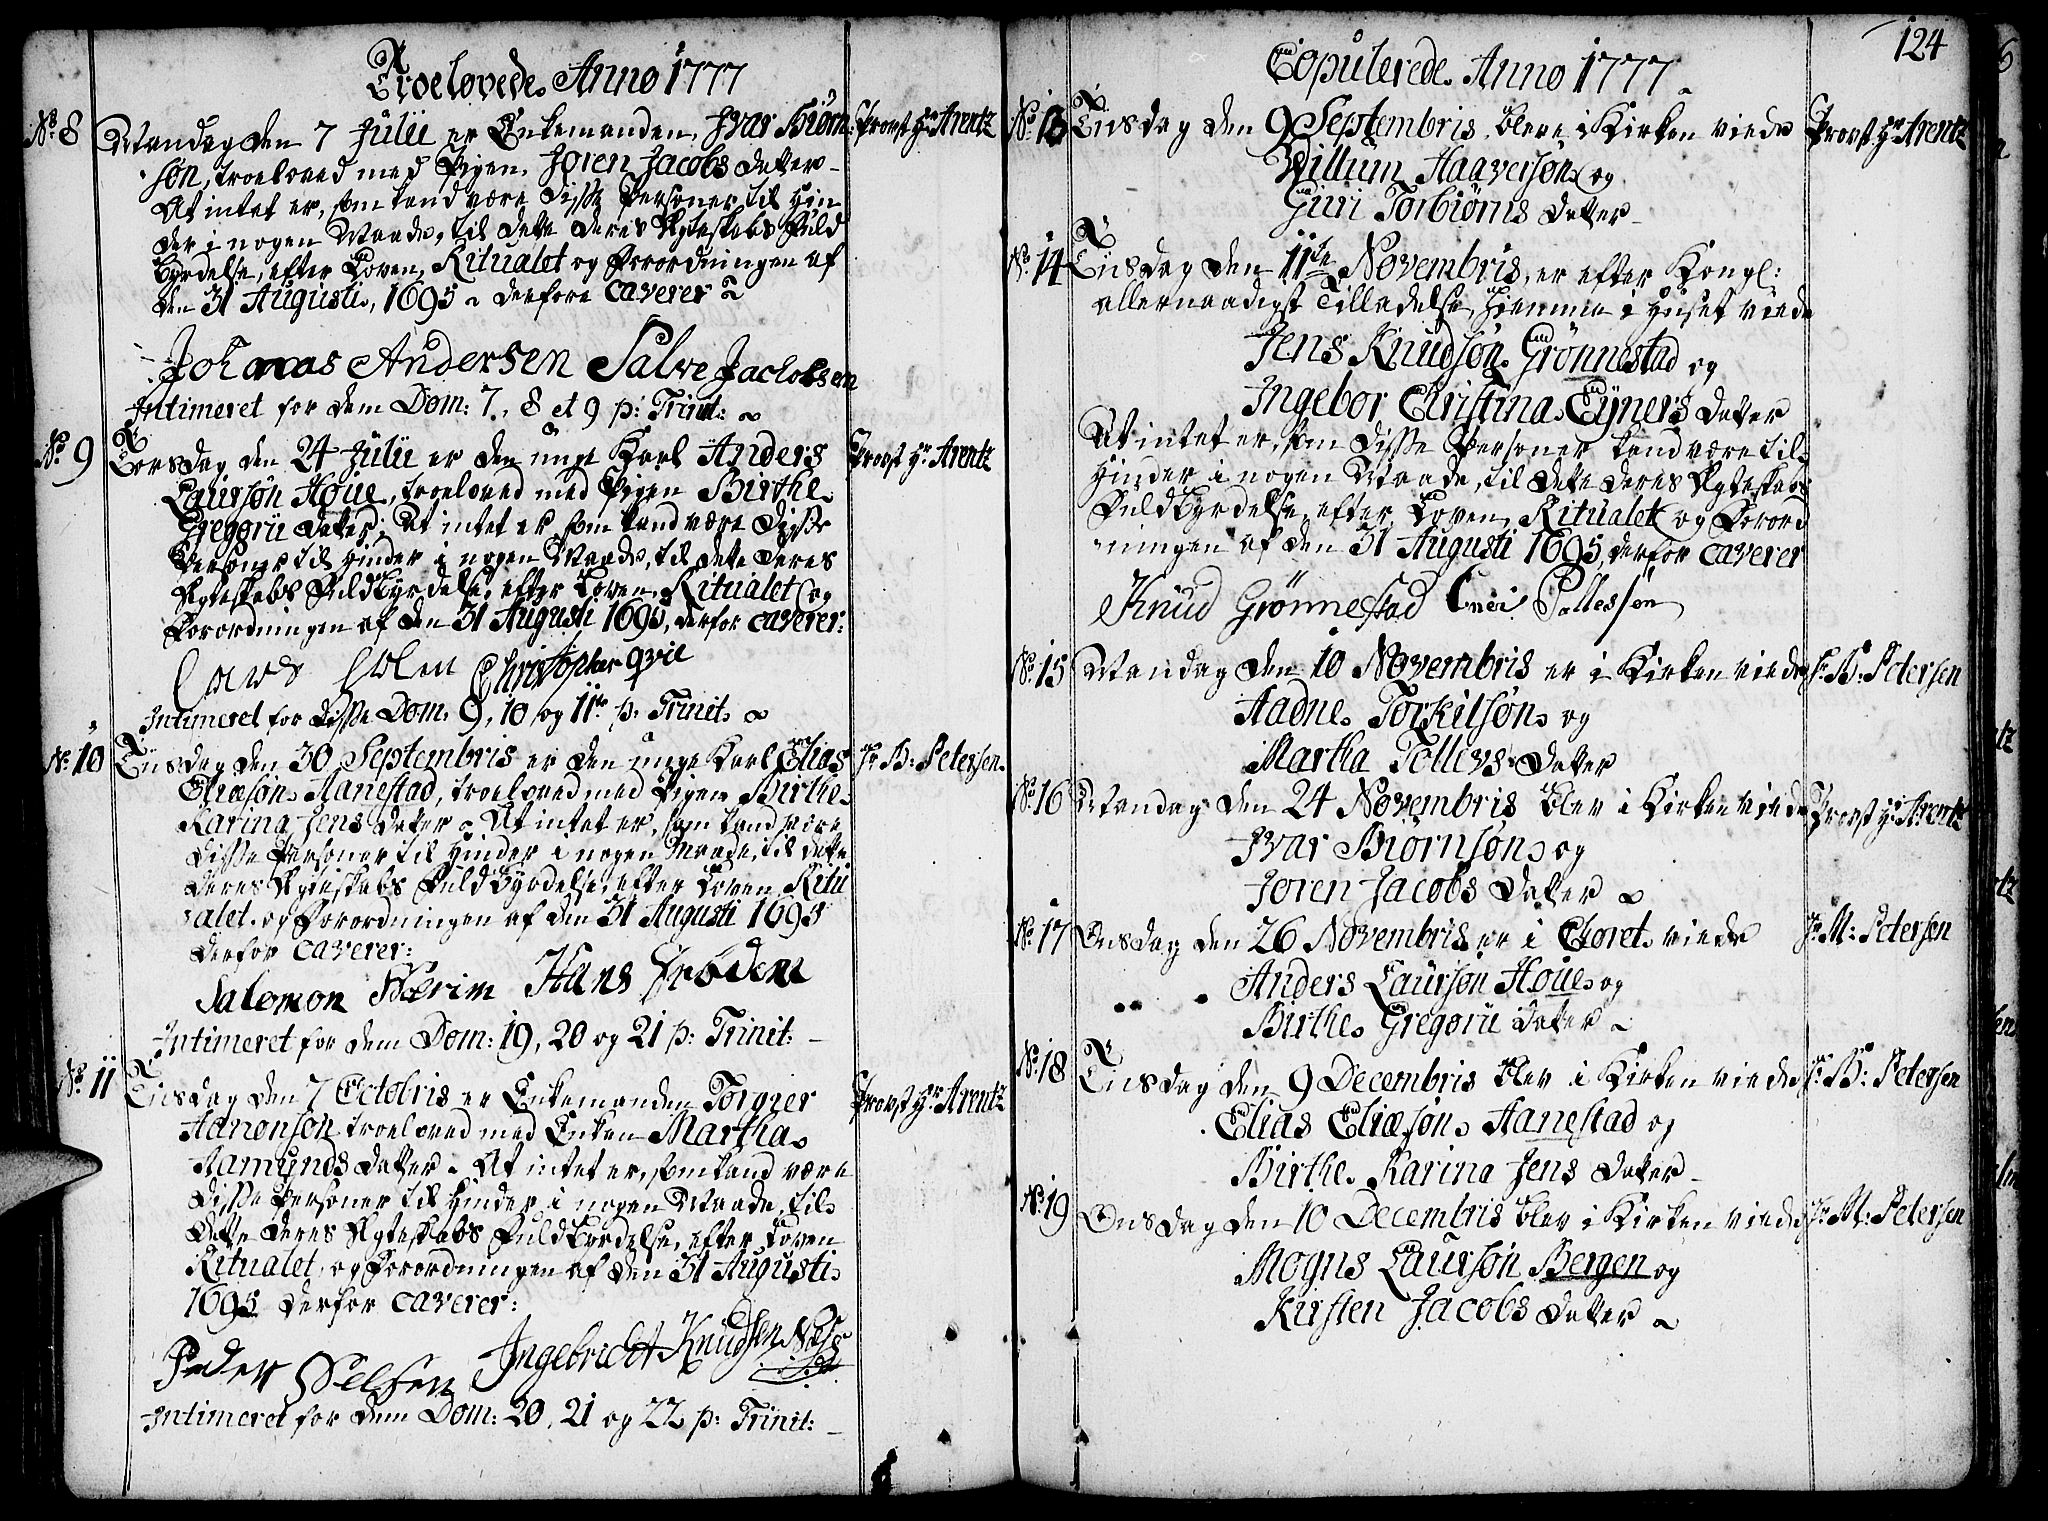 Troelovede Anno 1777
No. 8 Mandag den 7 Julii er Enkemanden, Ivar Biørn: Provst Hr. Arentz
søn, troeloved med Pigen, Joren Jacobs Datter
At intet er, som kand være Disse Personer til Hin
der i nogen Maade, til dette deres Ægteskabs Fuld
byrdelse, efter Loven, Ritualet og Forordningen af
den 31 Augusti, 1695 derfore caverer
Johanas Andersen Salve Jacobsen
Intimeret for dem Dom: 7, 8 et 9 p: Trinit:
No. 9 Torsdag den 24 Julii er den unge Karl Anders Provst Hr. Arentz
Laursøn Høue, troeloved med Pigen Birthe
Gregorii Datter; At intet er som kand være Disse
Personer til Hinder i nogen Maade, til dette deres
Ægteskabs Fuldbyrdelse, efter Loven, Ritualet og
Forordningen af den 31 Augusti 1695, derfor caverer:
Laurs Holm Christopher
Intimeret for Disse Dom: 9, 10 og 11te p: Trinit.
No. 10 Tiisdag den 30 Septembris er den unge Karl Elias Hr. B: Petersen
Eliæsøn Aanestad, troeloved med Pigen Birthe
Karina Jens Datter At intet er, som kand være
Disse Personer til Hinder i nogen Maade, til dette
deres Ægteskabs Fuldbyrdelse, efter Loven Ritu
alet og Forordningen af den 31 Augusti 1695
derfor caverer:
Salomon Hans
Intimeret for dem Dom: 19, 20 og 21 p: Trinit:
No. 11 Tiisdag den 7 Octobris er Enkemanden Torgier Provst Hr. Arentz
Adnønsøn troeloved med Enken Martha
Aamunds Datter At intet er, som kand være
Disse Personer til Hinder i nogen Maade, til
dette deres Ægteskabs Fuldbyrdelse, efter Loven
Ritualet, og Forordningen af den 31 Augusti
1695 derfor caverer:
Peder Ingebricht Knudsen Næss
Intimeret for dem Dom: 20, 21 og 22 p: Trinit:
124
Copulerede Anno 1777
No. 13 Tiisdag den 9 Septembris bleve i Kirken viede Provst Hr Arentz
Willum Haaversøn og
Guri Torbiørns Datter
No. 14 Tiisdag den 11te Novembris, er efter Kongl:
allernaadigst Tilladelse, hiemme i Huset viede
Jens Knudsøn Grønnestad og
Ingebor Christina Eyners Datter
At intet er, som Disse Personer kand være til
Hinder i nogen Maade, til dette deres Ægteskabs
Fuldbyrdelse, efter Loven, Ritualet og Forord
ningen af den 31 Augusti 1695, derfor caverer
Knud Grønnestad
No. 15 Mandag den 10 Novembris er i Kirken viede Hr. B: Petersen
Aadne Torkilsøn og
Martha Tollevs Datter
No. 16 Mandag den 24 Novembris blev i Kirken viede Provst Hr Arentz
Ivar Biørnsøn og
Joren Jacobs Datter
No. 17 Onsdag den 26 Novembris er i Choret viede Hr M: Petersen
Anders Laursøn Høue og
Birthe Gregorii Datter
No. 18 Tiisdag den 9 Decembris blev i Kirken viede Hr. B: Petersen
Elias Eliæsøn Aanestad og
Birthe Karina Jens Datter
No. 19 Onsdag den 10 Decembris blev i Kirken viede Hr. M: Petersen
Mogns Laursøn Bergen og
Kirsten Jacobs Datter